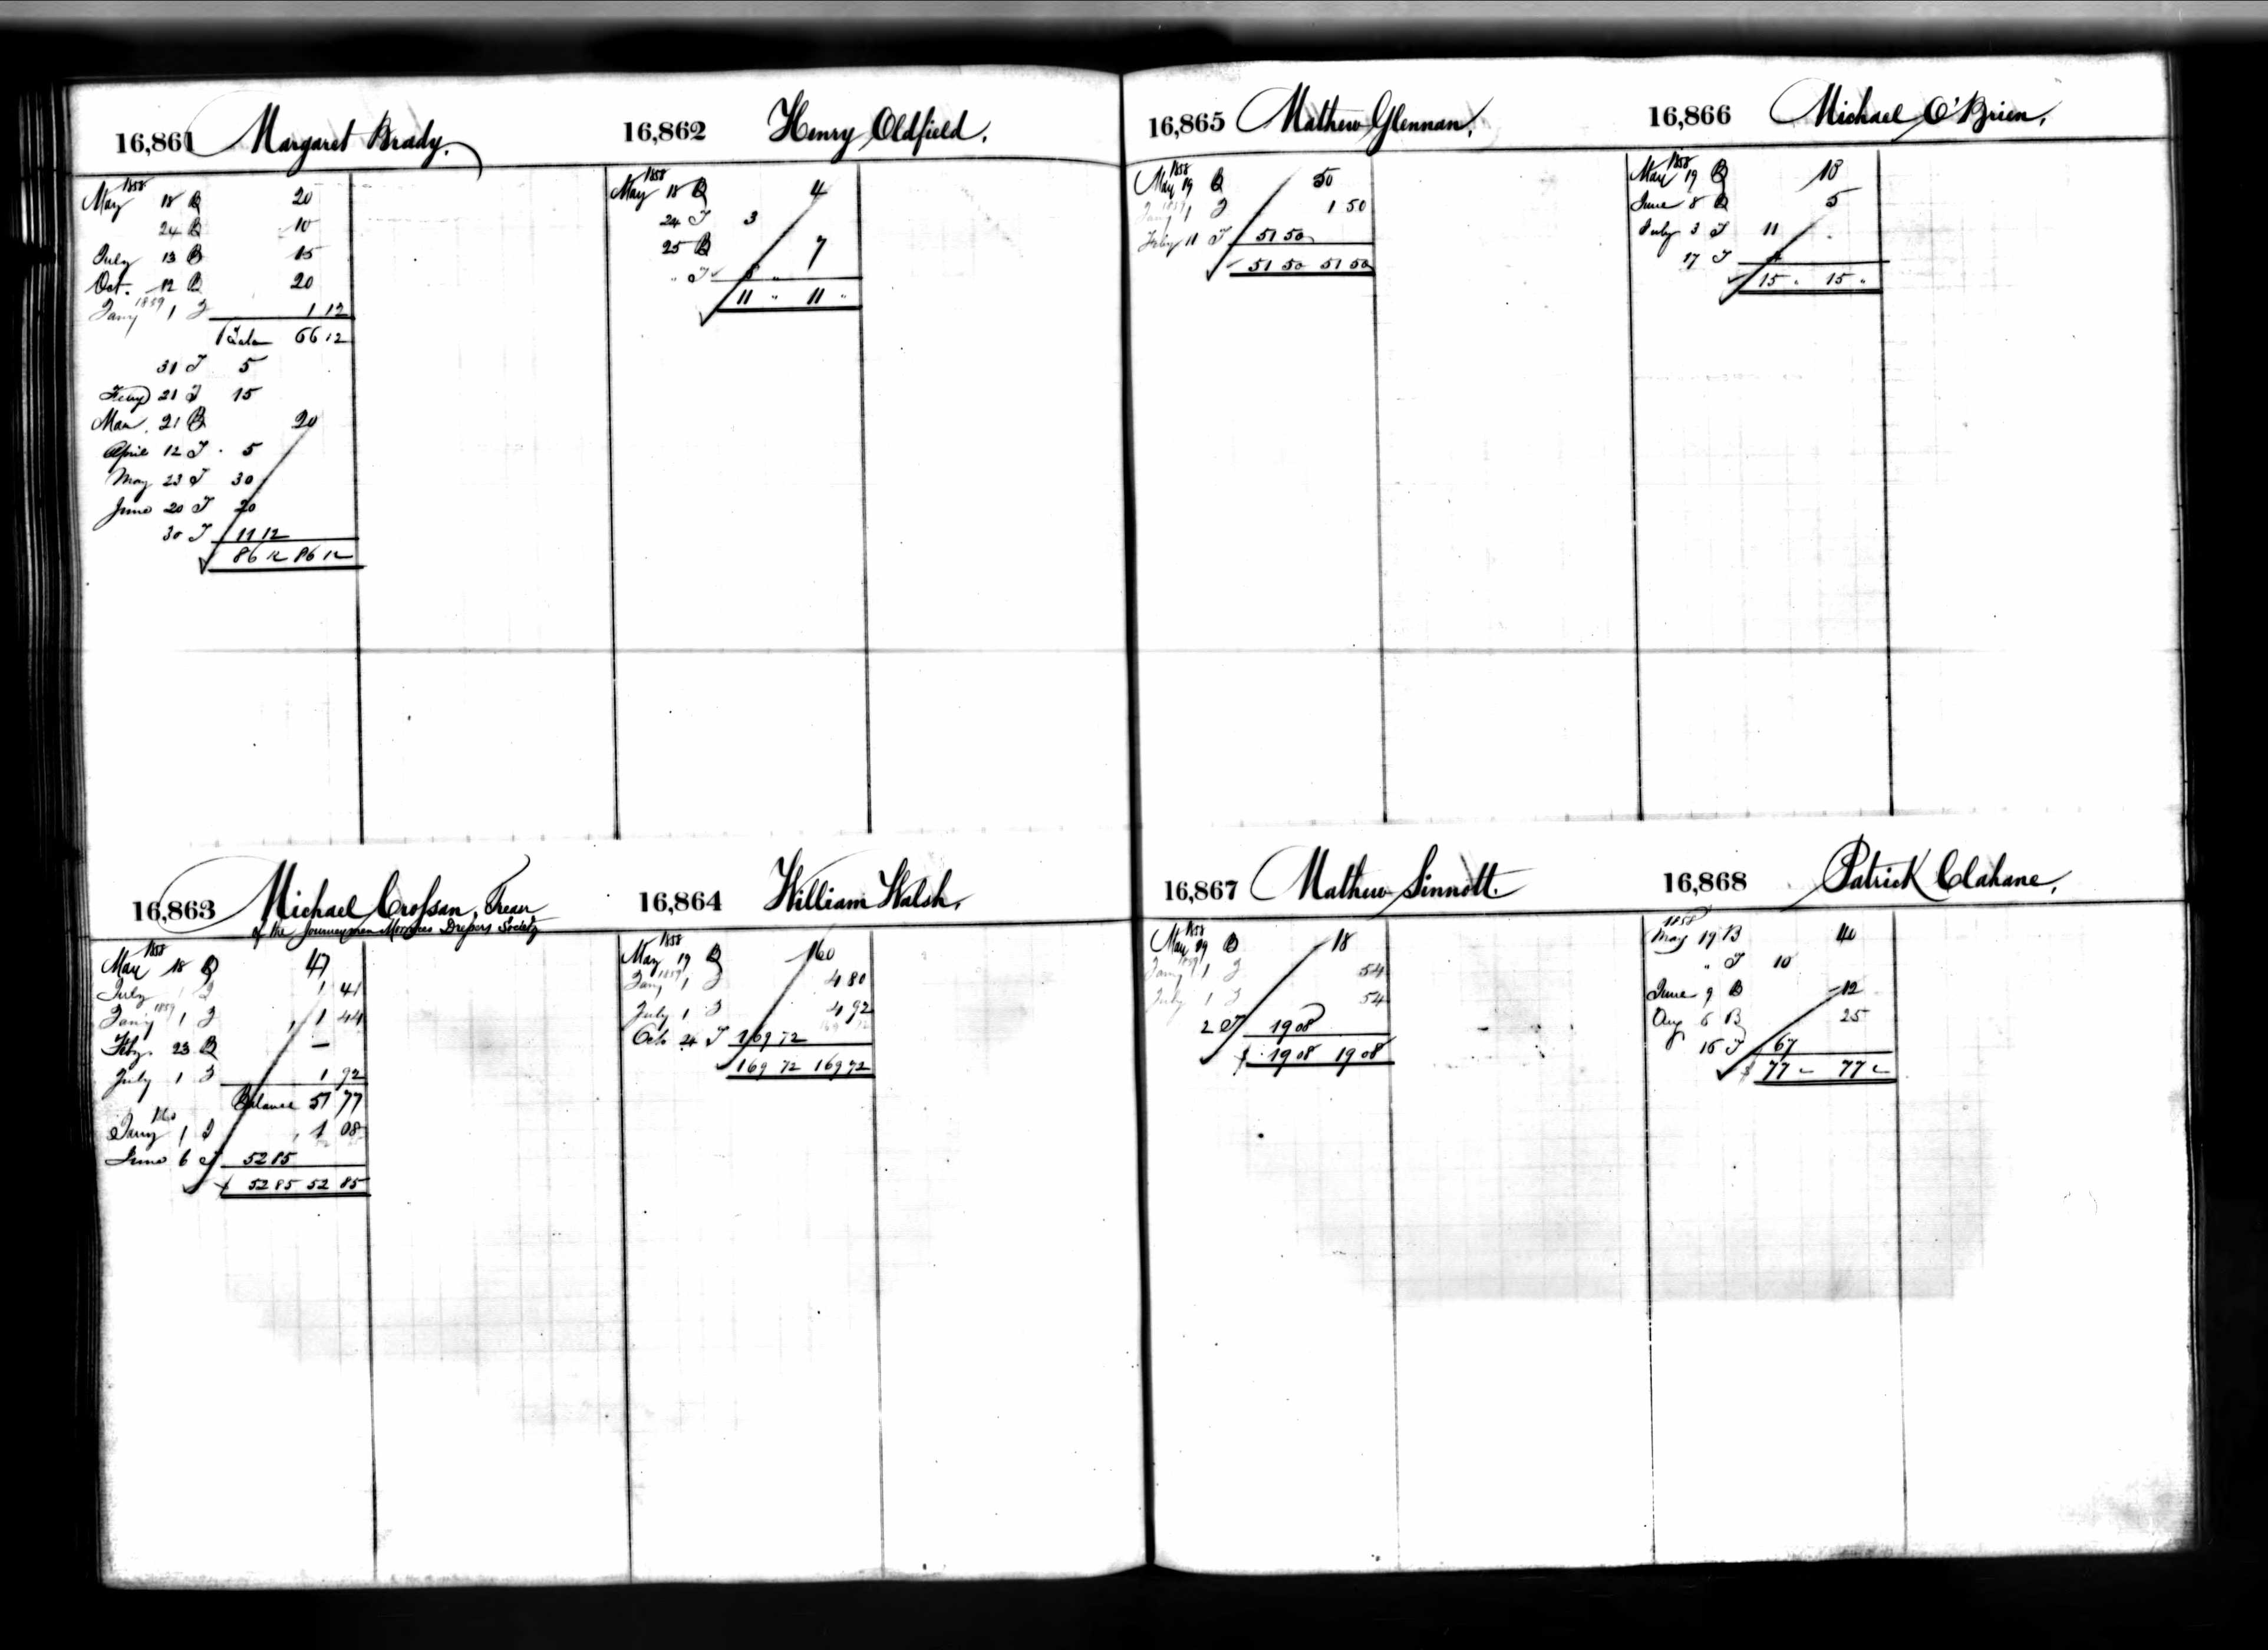 16,861 Margaret Brady.
1858
May 18 B 20
24 B 10
July 13 B 15
Oct. 12 B 20
Jany 1859 1 I 1 12
Balan 66 12
31 T 5
Feby 21 T 15
Mar. 21 B 20
April 12 T 5
May 23 T 30
June 20 T 20
30 T 11 12
86 12 86 12
16,862 Henry Oldfield.
1858
May 18 B 4
24 T 3
25 B 7
" T 8 "
11 " 11 "
16,863 Michael Crossan, Treasr
of the Journeymen Morocco Dressers Society
1858
May 18 B 47
July 1 I 1 41
Jany 1859 1 I 1 44
Feby. 23 B —
July 1 I 1 92
Balance 51 77
1860
Jany 1 I 1 08
June 6 T 52 85
$ 52 85 52 85
16,864 William Walsh.
1858
May 19 B 160
Jany 1859 1 I 4 80
July 1 I 4 92
Oct 24 T 169 72
169 72 169 72
16,865 Mathew Glennan.
1858
May 19 B 50
Jany 1859 1 I 1 50
Feby 11 T 51 50
51 50 51 50
16,866 Michael O'Brien.
1858
May 19 B 10
June 8 B 5
July 3 T 11
17 T 4
15 " 15 "
16,867 Mathew Sinnott.
1858
May 19 B 18
Jany 1859 1 I 54
July 1 I 54
2 T 19 08
$ 19 08 19 08
16,868 Patrick Clahane.
1858
May 19 B 40
" T 10
June 9 B 12
Aug 6 B 25
16 T 67
$ 77 " 77 "